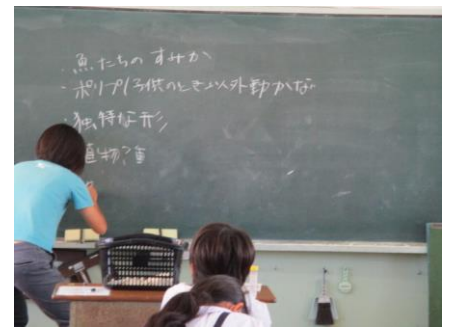 ・魚たちの すみか
・ポリプ(子供のとき以外動かな
・独特な形
植物?